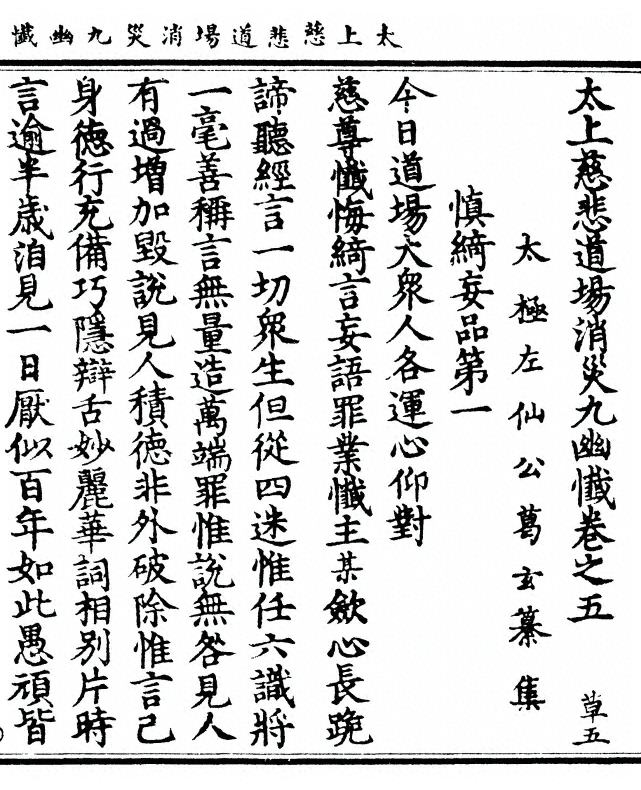 太上慈悲道場消災九幽懺
太上慈悲道場消災九幽懺卷之五 草五
太極左仙公葛玄纂集
慎綺妄品第一
今日道場大衆人各運心仰對
慈尊懺悔綺言妄語罪業懺主某歛心長跪
諦聽經言一切衆生但從四迷惟任六識將
一毫善稱言無量造萬端罪惟說無咎見人
有過增加毀說見人積德非外破除惟言己
身徳行充備巧隱辯舌妙麗華詞相別片時
言逾半歳洎見一日厭似百年如此愚頑皆